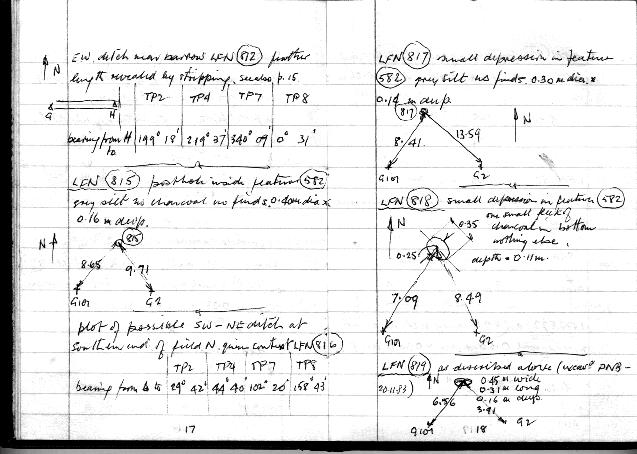 EW ditch near barrow LFN 812 further
length revealed by stripping, see also p.15
N
G H
TP2 TP4 TP7 TP8
bearing from H to 199° 18' 219° 37' 340° 09' 0° 31'
LFN 815 posthole inside feature 582
grey silt no charcoal no finds, 0.40m dia x
0.16 m deep.
N
815
8.65 9.71
G101 G2
plot of possible SW-NE ditch at
Southern end of field N. given context LFN 816
TP2 TP4 TP7 TP8
bearing from to 29° 42' 44° 40' 102° 20' 158° 43'
17
LFN 817 small depression in feature
582 grey silt no finds 0.30m dia x
0.14 m deep.
817
N
8.41 13.59
G101 G2
LFN 818 small depression in feature 582
one small fleck of
charcoal in bottom
nothing else.
depth = 0.11m.
N
0.35
0.25
7.09 8.49
G101 G2
LFN 819 as described above PNB-
20.11.83)
N
0.45m wide
0.31m long
0.16m deep
6.56 3.91
G101 G2
18